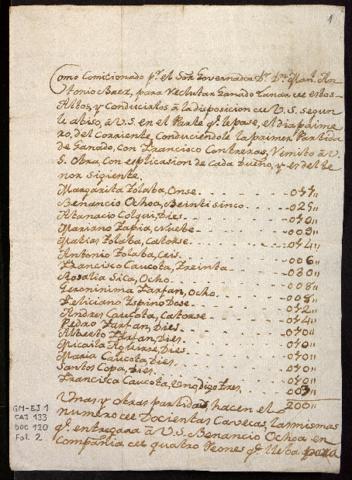 1
Como Comicionado pr. el Sor. Governador Dr. Dn. Man. An-
tonio Baez, para Rechutar Ganado Lanar de estos
Altos, y Conducirlos à la disposicion de V.S. segun
le abiso, à V.S. en el Parte qe. le pasè, el dia prime-
ro, del Corriente, Conduciendole la primer Partida
de Ganado, con Francisco Contreras, Remito à V.
S. Otra, Con esplicacion de Cada dueño, y es del te-
nor Sigiente.
Margarita Tolaba, Onse. - - - - 011,,
Benancio Ochoa, Beinti sinco - - - 025,,
Atanacio Colqui, Dies - - - - 010,,
Mariano Tapia, Nuebe - - - - 009,,
Matias Tolaba, Catorse - - - - 014,,
Antonio Tolaba, Ceis - - - - 006,,
Francisco Caucota, Treinta - - - - 030,,
Rosalia Sica, Ocho - - - - 008,,
Geronimina Farfan, Ocho - - - - 008,,
Feliciano Espino Dose - - - - 012,,
Andres Caucota, Catorse - - - - 014,,
Pedro Farfan, Dies - - - - 010,,
Alberto Farfan, Dies - - - - 010,,
Micaila Dies - - - - 010,,
Maria Caucota, Dies - - - - 010,,
Santos Copa, Dies - - - - 010,,
Francisca Caucota, Uno digo tres - - - 003,,
200,,
Unas y Otras partidas, hacen el
numero de Docientas Cavecas, Las mismas
qe. entregara à V.S. Benancio Ochoa en
Compañia de quatro Peones qe. lleba, para
GM-EJ 1
CAJ 133
DOC 120
Fol. 2